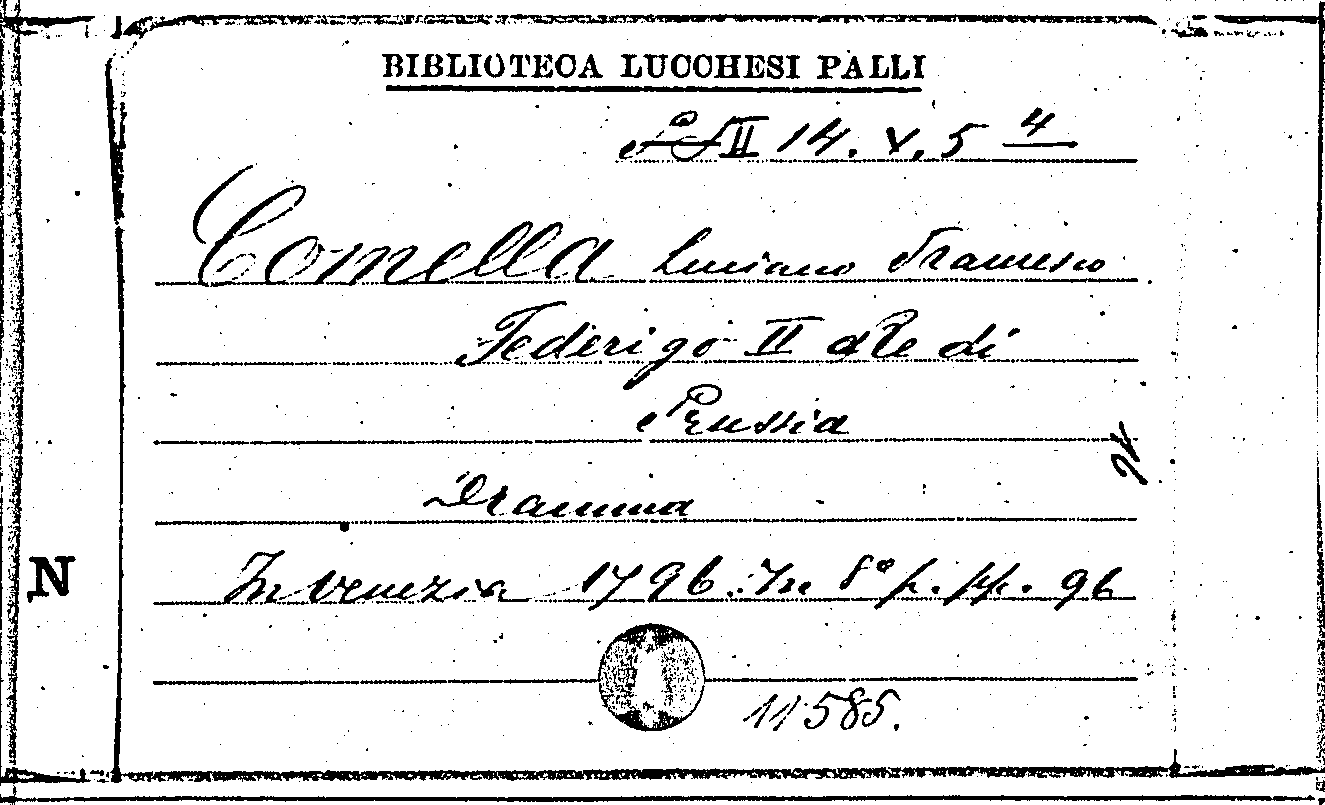 BIBLIOTECA LUCCHESI PALLI
II 14. V. 5 4
Comella Luciano Francesco
Federigo II Re di
Prussia
Dramma
In Venezia 1796. In 8° p. pp. 96
N
11585.